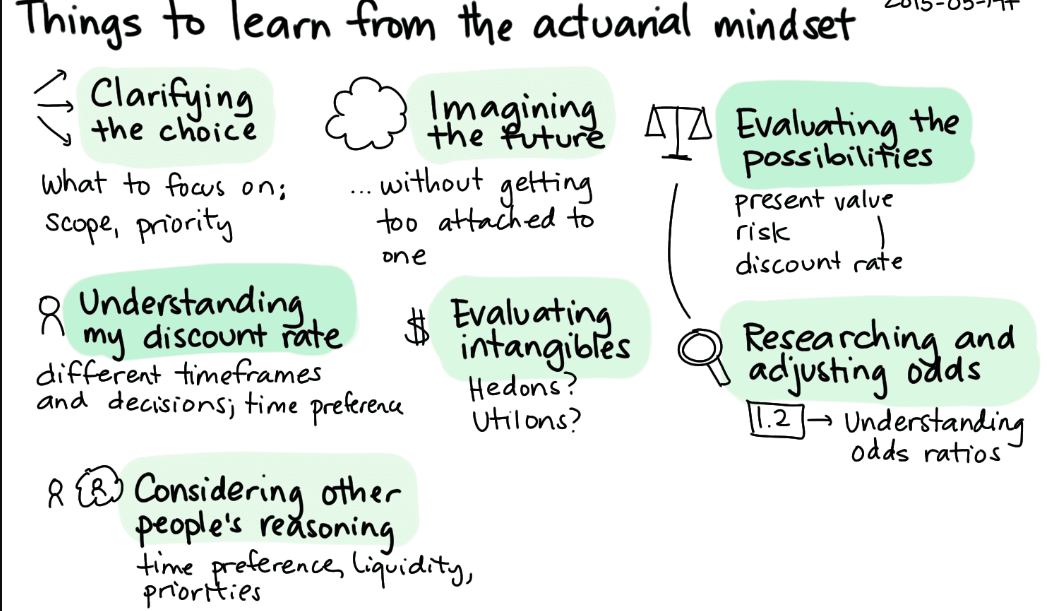 Things to learn from the actuarial mindset
Clarifying
the choice
what to focus on;
scope, priority
Imagining
the future
... without getting
too attached to
one
Evaluating the
possibilities
present value
risk
discount rate
Understanding
my discount rate
different timeframes
and decisions; time preference
$
Evaluating
intangibles
Hedons?
Utilons?
Researching and
adjusting odds
1.2 → Understanding
odds ratios
Considering other
people's reasoning
time preference, liquidity,
priorities